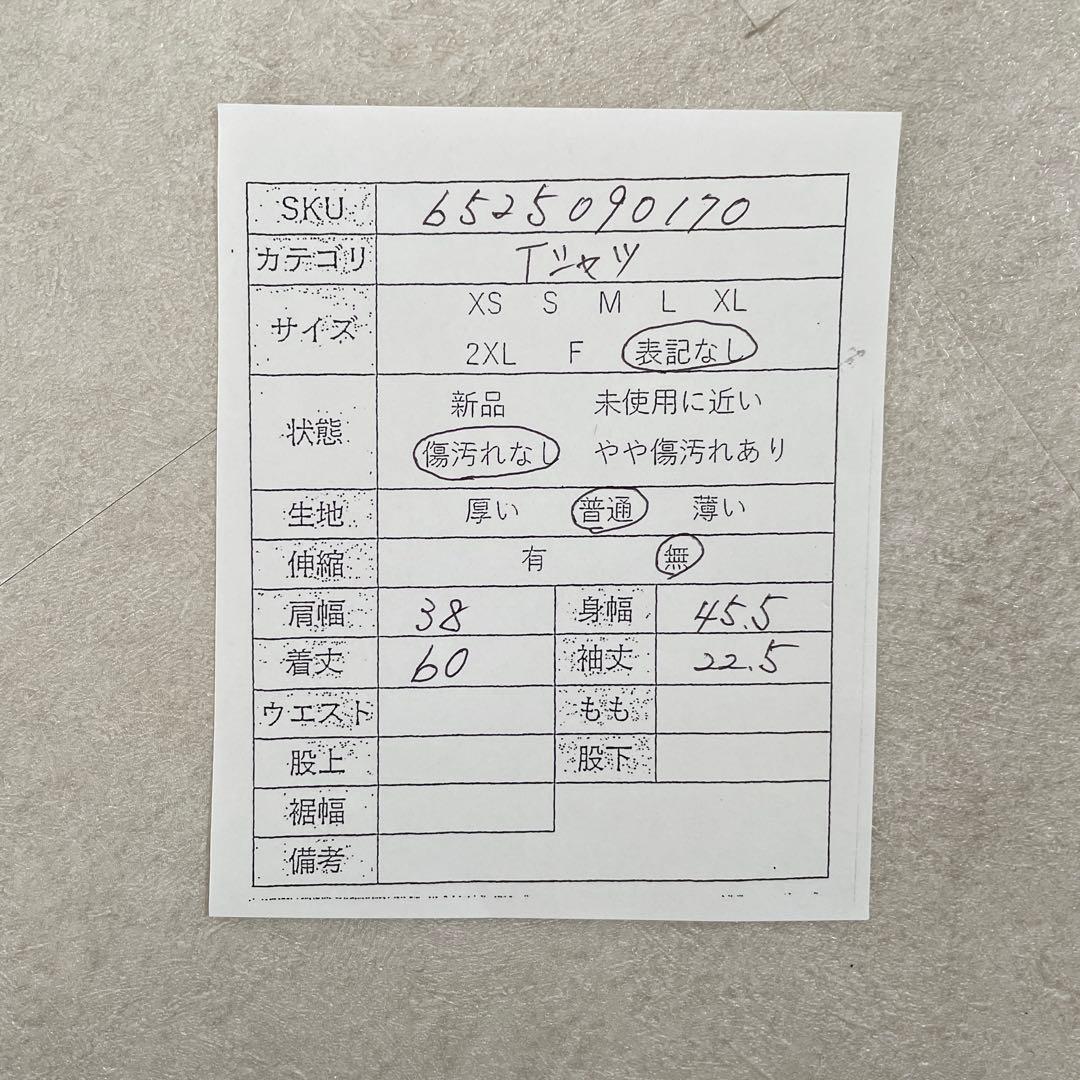 SKU 6525090170
カテゴリ Tシャツ
サイズ XS S M L XL
2XL F 表記なし
状態 新品 未使用に近い
傷汚れなし やや傷汚れあり
生地 厚い 普通 薄い
伸縮 有 無
肩幅 38 身幅 45.5
着丈 60 袖丈 22.5
ウエスト もも
股上 股下
裾幅
備考